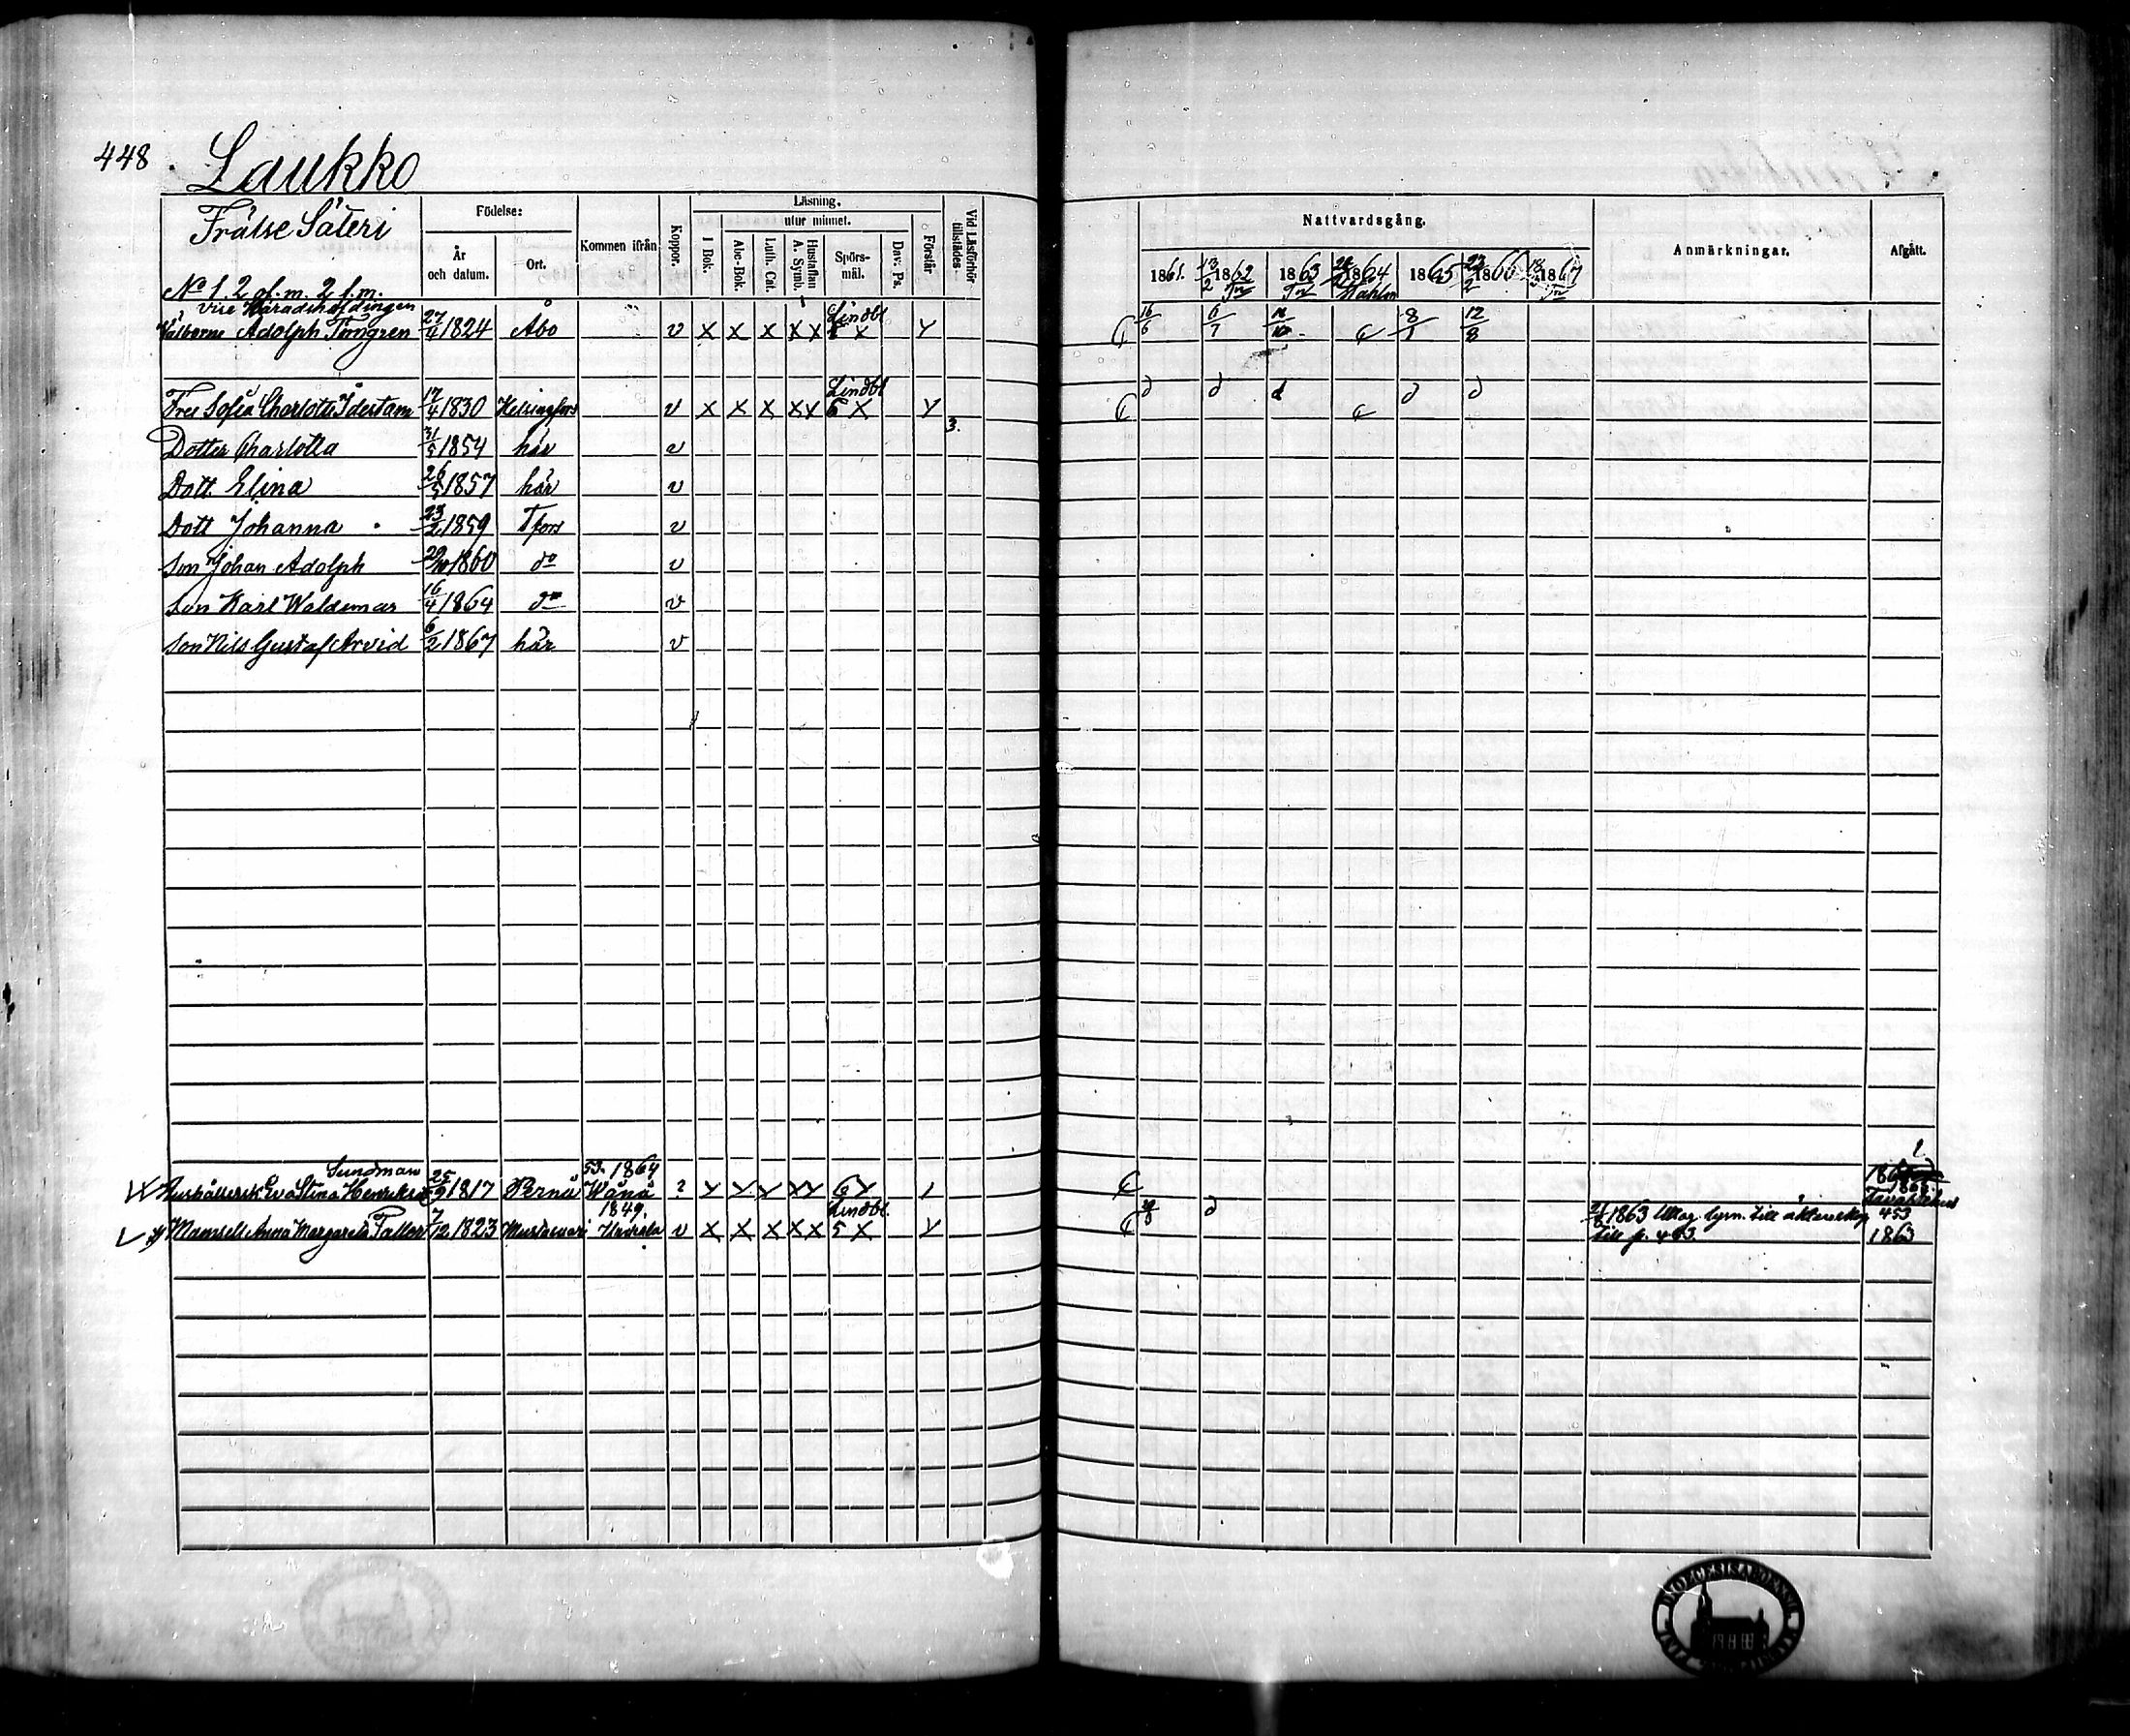 448. Laukko
Frälse Säteri
No 1. 2 of. m. 2 f. m.
Födelse:
År och datum.
Ort.
Kommen ifrån
Koppor.
Läsning.
utur minnet.
I Bok.
Abc-Bok.
Luth. Cat.
Hustaflan A. Symb.
Spörs-mål.
Dav. Ps.
Förstår
Vid Läsförhör tillstädes
Nattvardsgång.
1861. 13/2 1862 1863 1864 1865 22/2 1866 1867
Anmärkningar.
Afgått.
Vice Häradshöfdingen Lindbl
Välborne Adolph Törngren 27/4 1824 Åbo v X X X X X X Y 16/6 6/7 8/1 12/8
Lindbl
Fru Sofia Charlotta Idestam 17/4 1830 Helsingfors v X X X X X 6 X Y d d d d d
3.
Dotter Charlotta 31/5 1854 här v
Dott. Elina 26/5 1857 här v
Dott Johanna 23/2 1859 Tfors v
Son Johan Adolph 29/10 1860 do v
Son Karl Waldemar 16/4 1864 do v
Son Nils Gustaf Arvid 6/2 1867 här v
Sundman 53. 1864
Hushållersk. Eva Stina 25/9 1817 Pernå Wånå ? Y Y Y Y Y 6 Y 1865 Tavastehus
1849. Lindbl.
Mamsell Anna Margareta 7/12 1823 v X X X X X 5 X Y d 1863 till 453
till p. 453. 1863